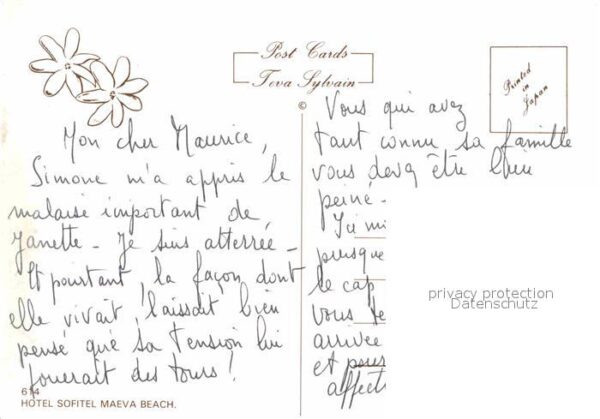 Post Cards
Teva Sylvain
©
Printed
in
Japan
Mon cher Maurice,
Simone m'a appris le
malaise important de
Janette - Je suis atterrée -
Et pourtant, la façon dont
elle vivait, laissait bien
pensé que sa tension lui
jouerait des tours !
Vous qui avez
tant connu sa famille
vous devez être bien
peiné -
Ici mi
presque
le cap
vous
arrivée
et
affect
privacy protection
Datenschutz
614
HOTEL SOFITEL MAEVA BEACH.